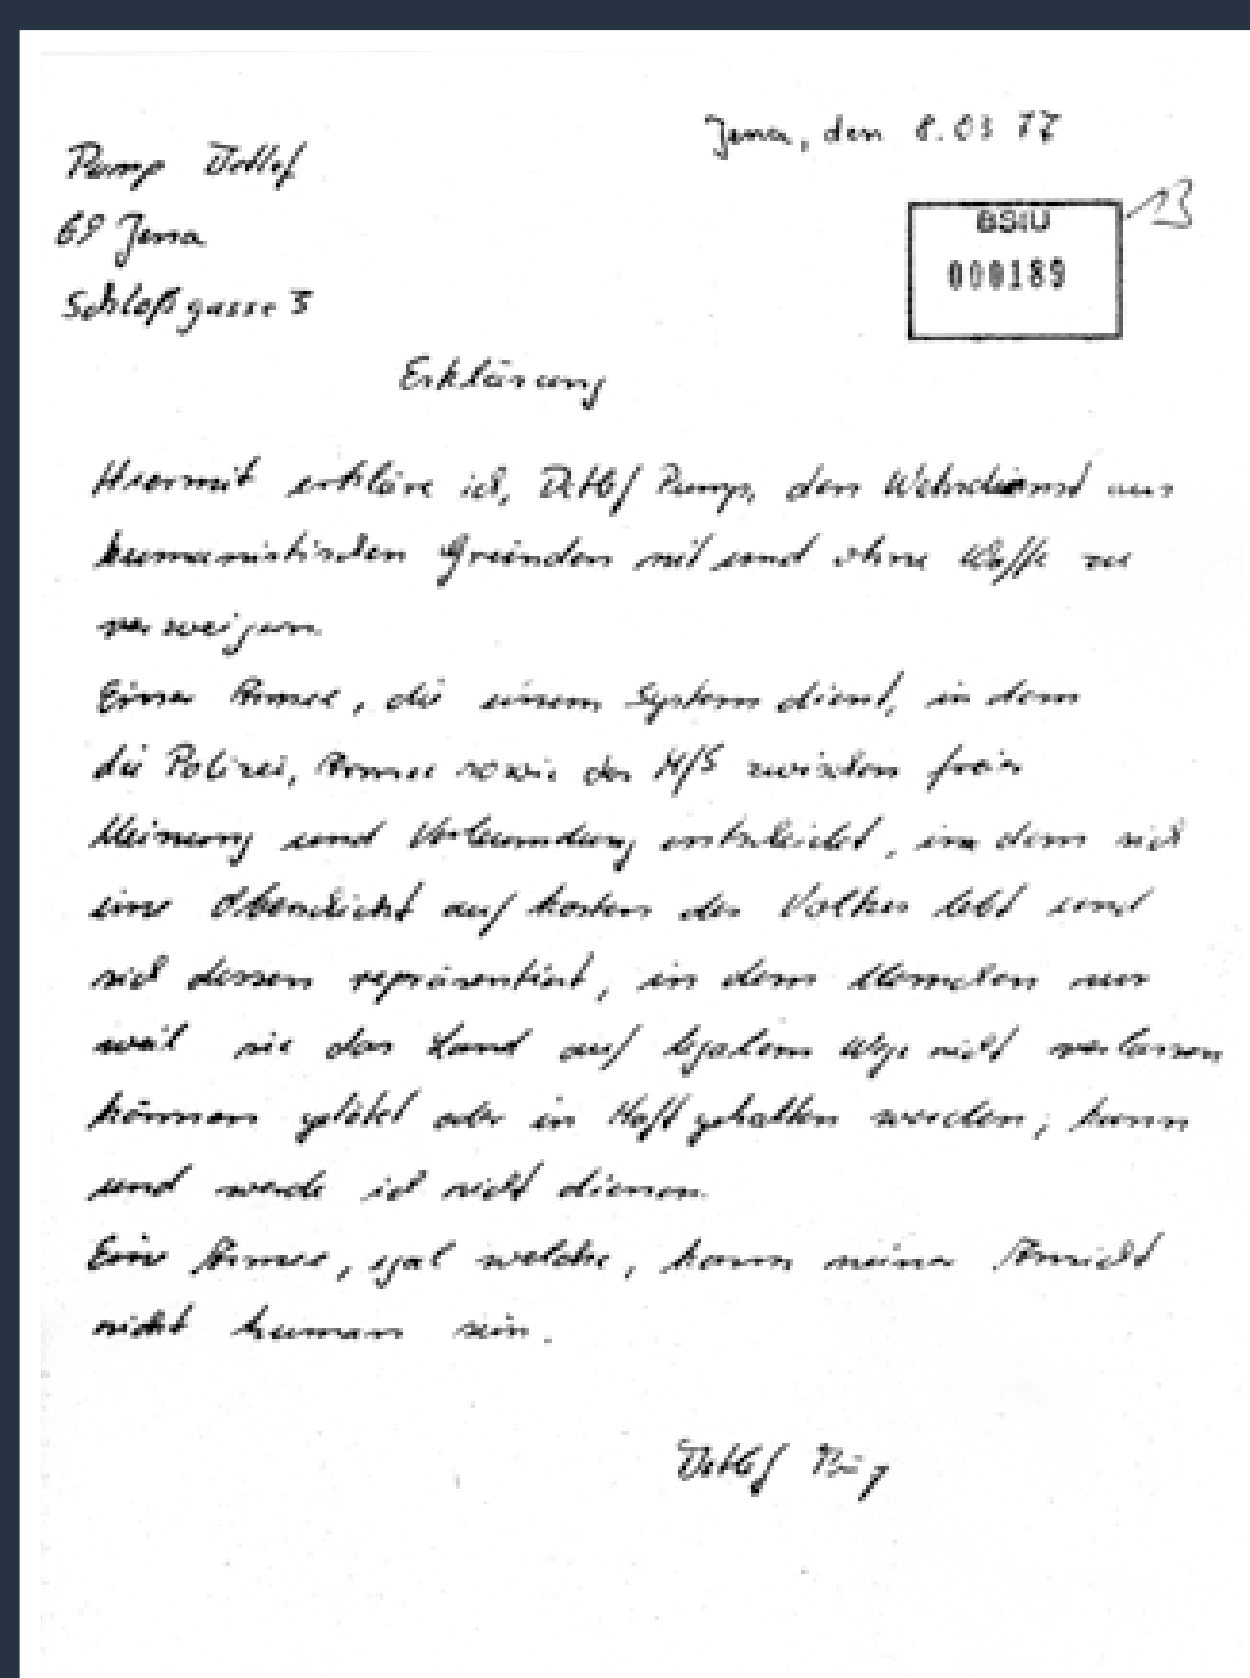 Jena, den 8.03 77
Pump Detlef
69 Jena
Schloßgasse 3
13
BStU
000189
Erklärung
Hiermit erkläre ich, Detlef Pump, den Wehrdienst aus
humanistischen Gründen mit und ohne Waffe zu
verweigern.
Einer Armee, die einem System dient, in dem
die Polizei, Armee sowie der MfS zwischen freier
Meinung und Verleumdung entscheidet, in dem sich
eine Oberschicht auf kosten des Volkes lebt und
sich dessen repräsentiert, in dem Menschen nur
weil sie das Land auf legalem Wege nicht verlassen
können getötet oder in Haft gehalten werden, kann
und werde ich nicht dienen.
Eine Armee, egal welche, kann meiner Ansicht
nicht human sein.
Detlef Pump